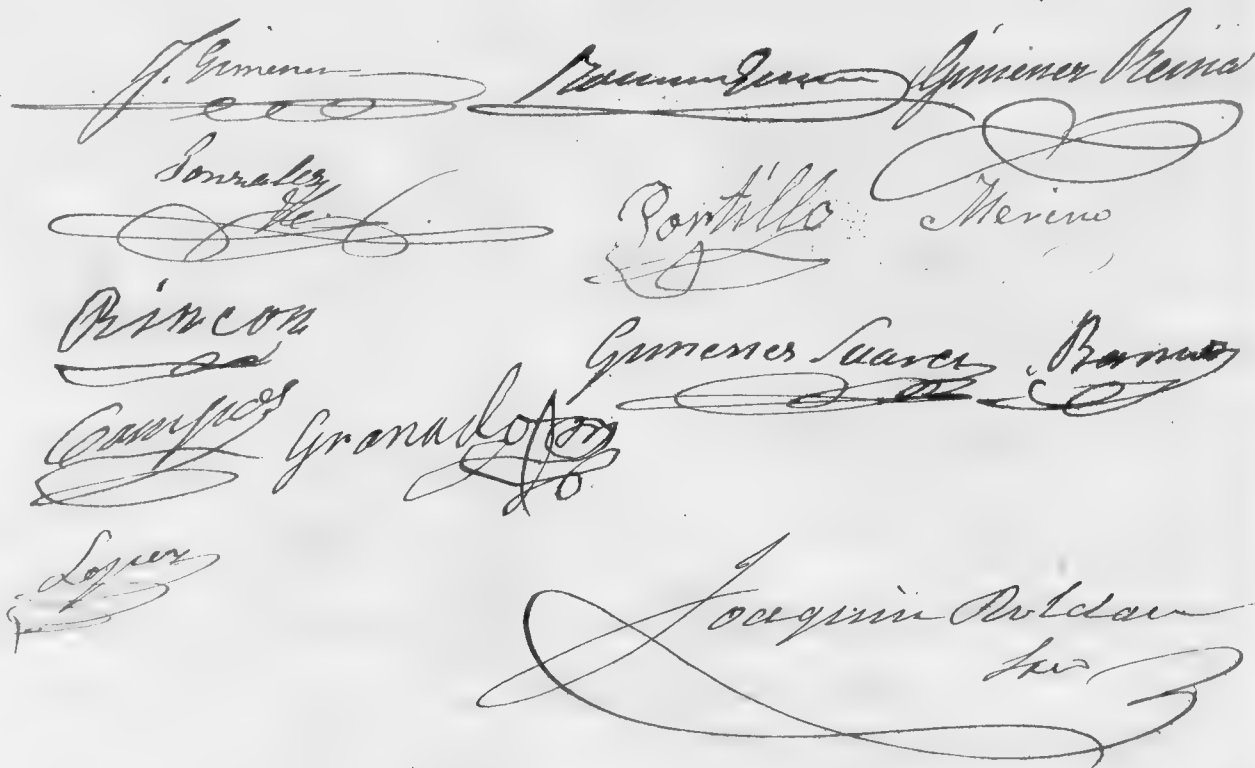 J. Gimenez Gimenez Reina
Gonzalez Portillo Merino
Rincon Gimenez Suarez
Campos Granados
Lopez
Joaquin Roldan
Srio